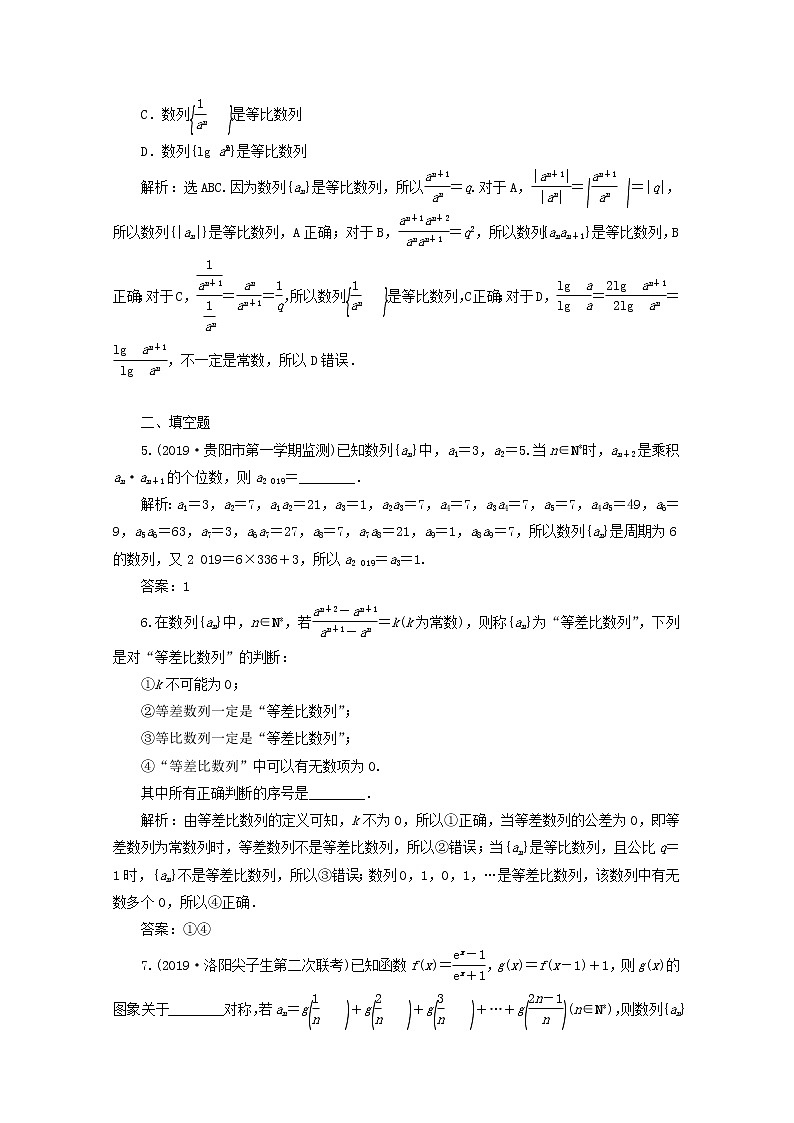 C.数列{1/aₙ}是等比数列
D.数列{lg aₙ²}是等比数列
解析:选ABC.因为数列{aₙ}是等比数列,所以aₙ₊₁/aₙ=q.对于A,|aₙ₊₁|/|aₙ|=|aₙ₊₁/aₙ|=|q|,
所以数列{|aₙ|}是等比数列,A正确;对于B,aₙ₊₁aₙ₊₂/aₙaₙ₊₁=q²,所以数列{aₙaₙ₊₁}是等比数列,B
正确;对于C,(1/aₙ₊₁)/(1/aₙ)=aₙ/aₙ₊₁=1/q,所以数列{1/aₙ}是等比数列,C正确;对于D,lg a/lg a=2lg aₙ₊₁/2lg aₙ=
lg aₙ₊₁/lg aₙ,不一定是常数,所以D错误.
二、填空题
5.(2019·贵阳市第一学期监测)已知数列{aₙ}中,a₁=3,a₂=5.当n∈N*时,aₙ₊₂是乘积
aₙ·aₙ₊₁的个位数,则a₂ ₀₁₉=________.
解析:a₁=3,a₂=7,a₁a₂=21,a₃=1,a₂a₃=7,a₄=7,a₃a₄=7,a₅=7,a₄a₅=49,a₆=
9,a₅a₆=63,a₇=3,a₆a₇=27,a₈=7,a₇a₈=21,a₉=1,a₈a₉=7,所以数列{aₙ}是周期为6
的数列,又2 019=6×336+3,所以a₂ ₀₁₉=a₃=1.
答案:1
6.在数列{aₙ}中,n∈N*,若(aₙ₊₂-aₙ₊₁)/(aₙ₊₁-aₙ)=k(k为常数),则称{aₙ}为“等差比数列”,下列
是对“等差比数列”的判断:
①k不可能为0;
②等差数列一定是“等差比数列”;
③等比数列一定是“等差比数列”;
④“等差比数列”中可以有无数项为0.
其中所有正确判断的序号是________.
解析:由等差比数列的定义可知,k不为0,所以①正确,当等差数列的公差为0,即等
差数列为常数列时,等差数列不是等差比数列,所以②错误;当{aₙ}是等比数列,且公比q=
1时,{aₙ}不是等差比数列,所以③错误;数列0,1,0,1,…是等差比数列,该数列中有无
数多个0,所以④正确.
答案:①④
7.(2019·洛阳尖子生第二次联考)已知函数f(x)=(eˣ-1)/(eˣ+1),g(x)=f(x-1)+1,则g(x)的
图象关于________对称,若aₙ=g(1/n)+g(2/n)+g(3/n)+…+g((2n-1)/n)(n∈N*),则数列{aₙ}